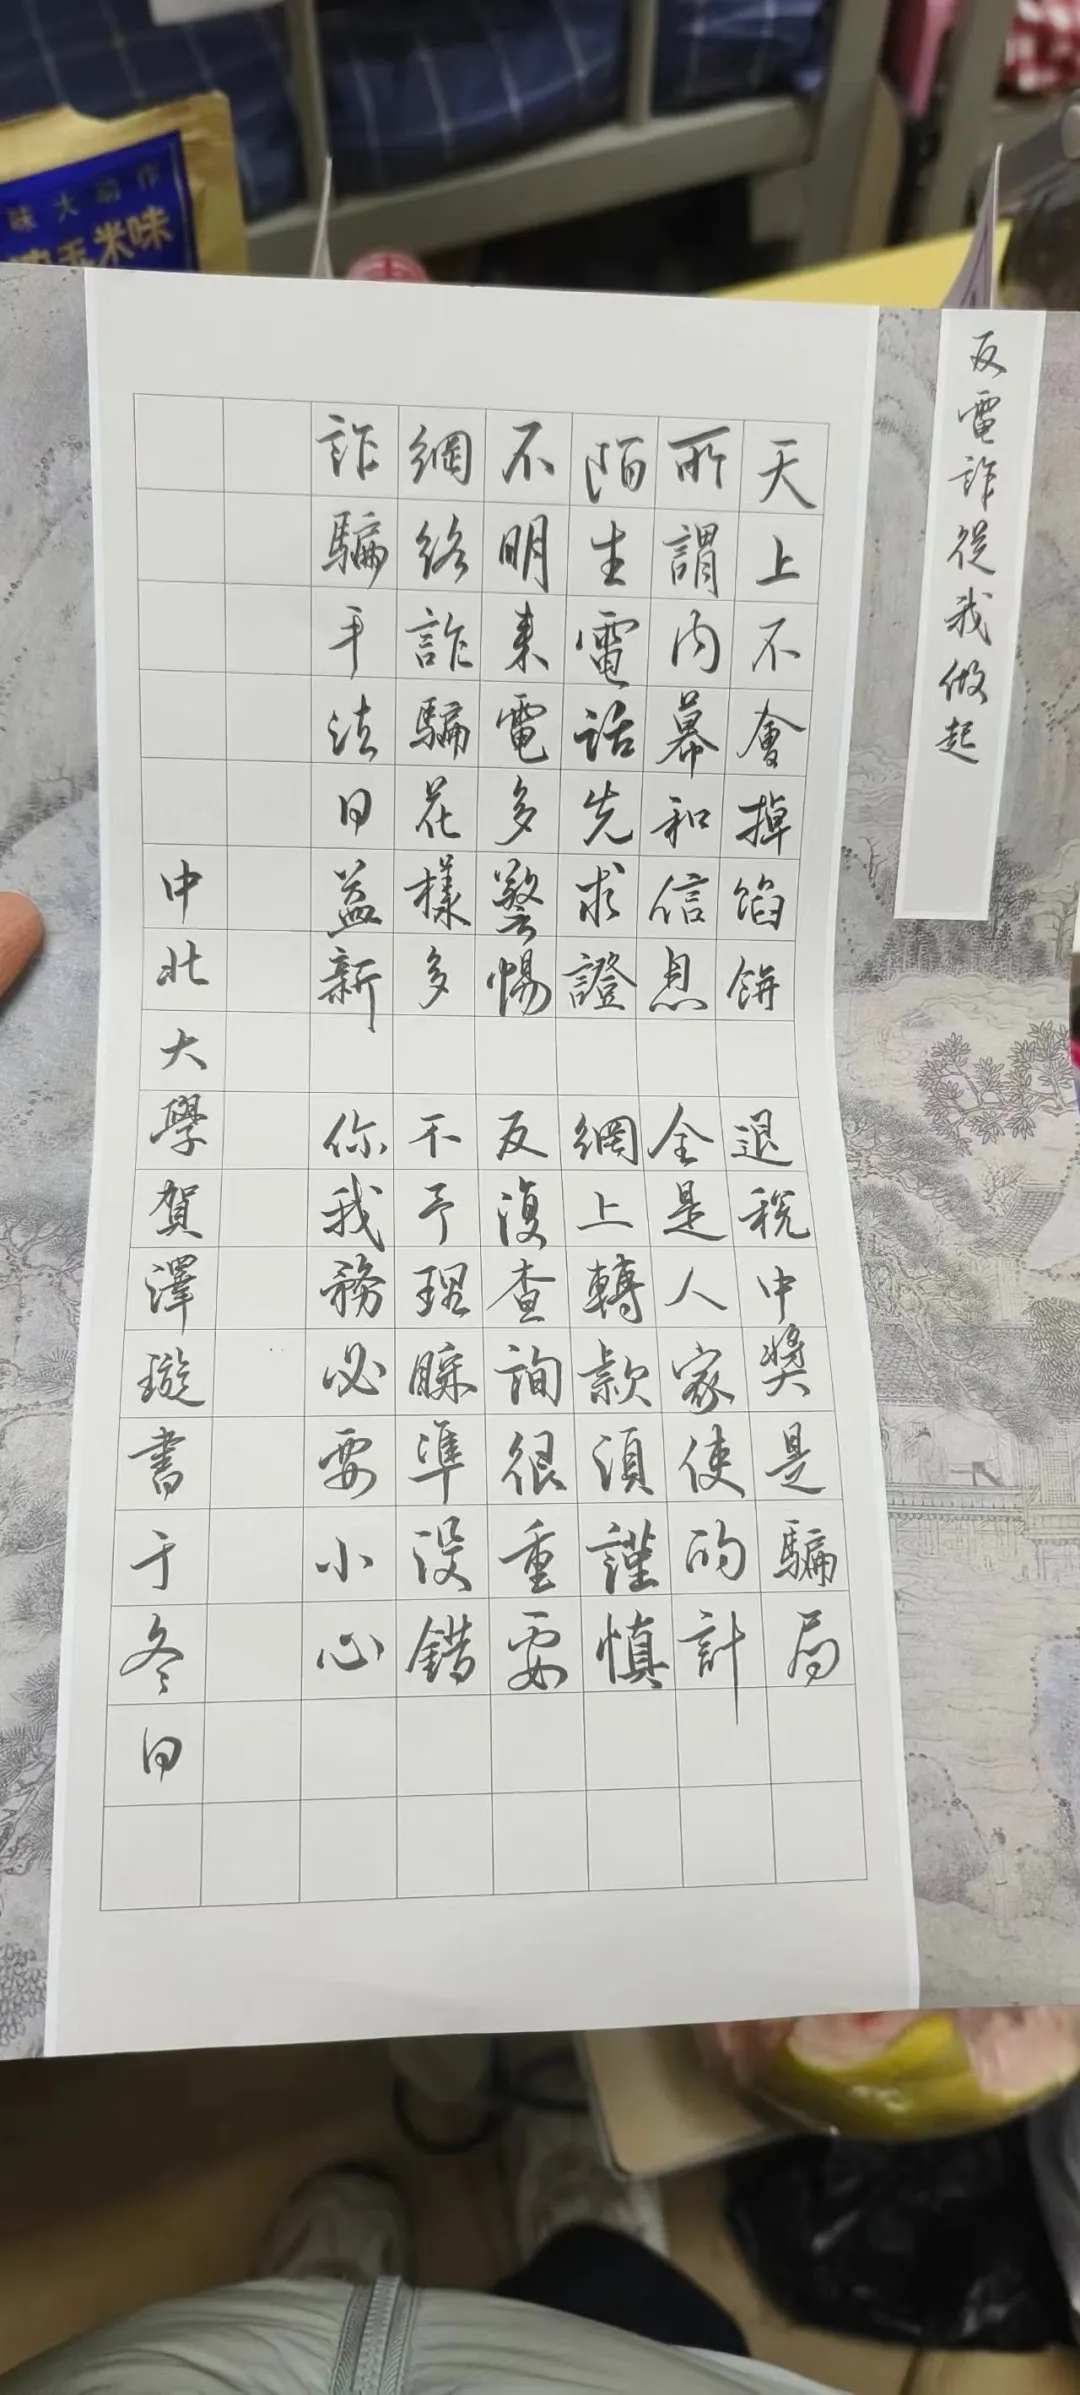 反電詐從我做起
天上不會掉餡餅 退税中奬是騙局
所謂内幕和信息 全是人家使的計
陌生電話先求證 網上轉款須謹慎
不明來電多警惕 反復查詢很重要
網絡詐騙花樣多 不予理睬準没錯
詐騙手法日益新 你我務必要小心
中北大學賀澤璇書于冬日
味大动作
玉米味